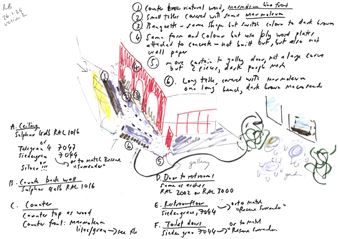 ① Counter tops natural wood, marmoleum the front
② Small tables covered with same marmoleum
③ Banquette - some shape but switch colour to dark brown
④ Same form and colour but use ply wood plates
attached to concrete - not built out, but also not
wall paper
⑤ move curtain to galley door, not a large curve
2 pieces, dark purple mesh
⑥ Long table covered with marmoleum
one long bench, dark brown
gallery
A. Ceiling
Sulphur Gelb RAL 1016
or
Telegrau 4 7047
Seidengrau 7044
or
Silver !!!
or to match Rescue
"Lavender"
B. Counter back wall
Sulphur Gelb RAL 1016
C. Counter
Counter top as wood
Counter front: marmoleum
lilac/green
D. Door to restrooms
same as either
RAL 7002 or RAL 7000
Seidengrau, 7044
or to match
"Rescue Lavender"
F. Toilet doors
Seidengrau 7044
or to match
"Rescue Lavender"